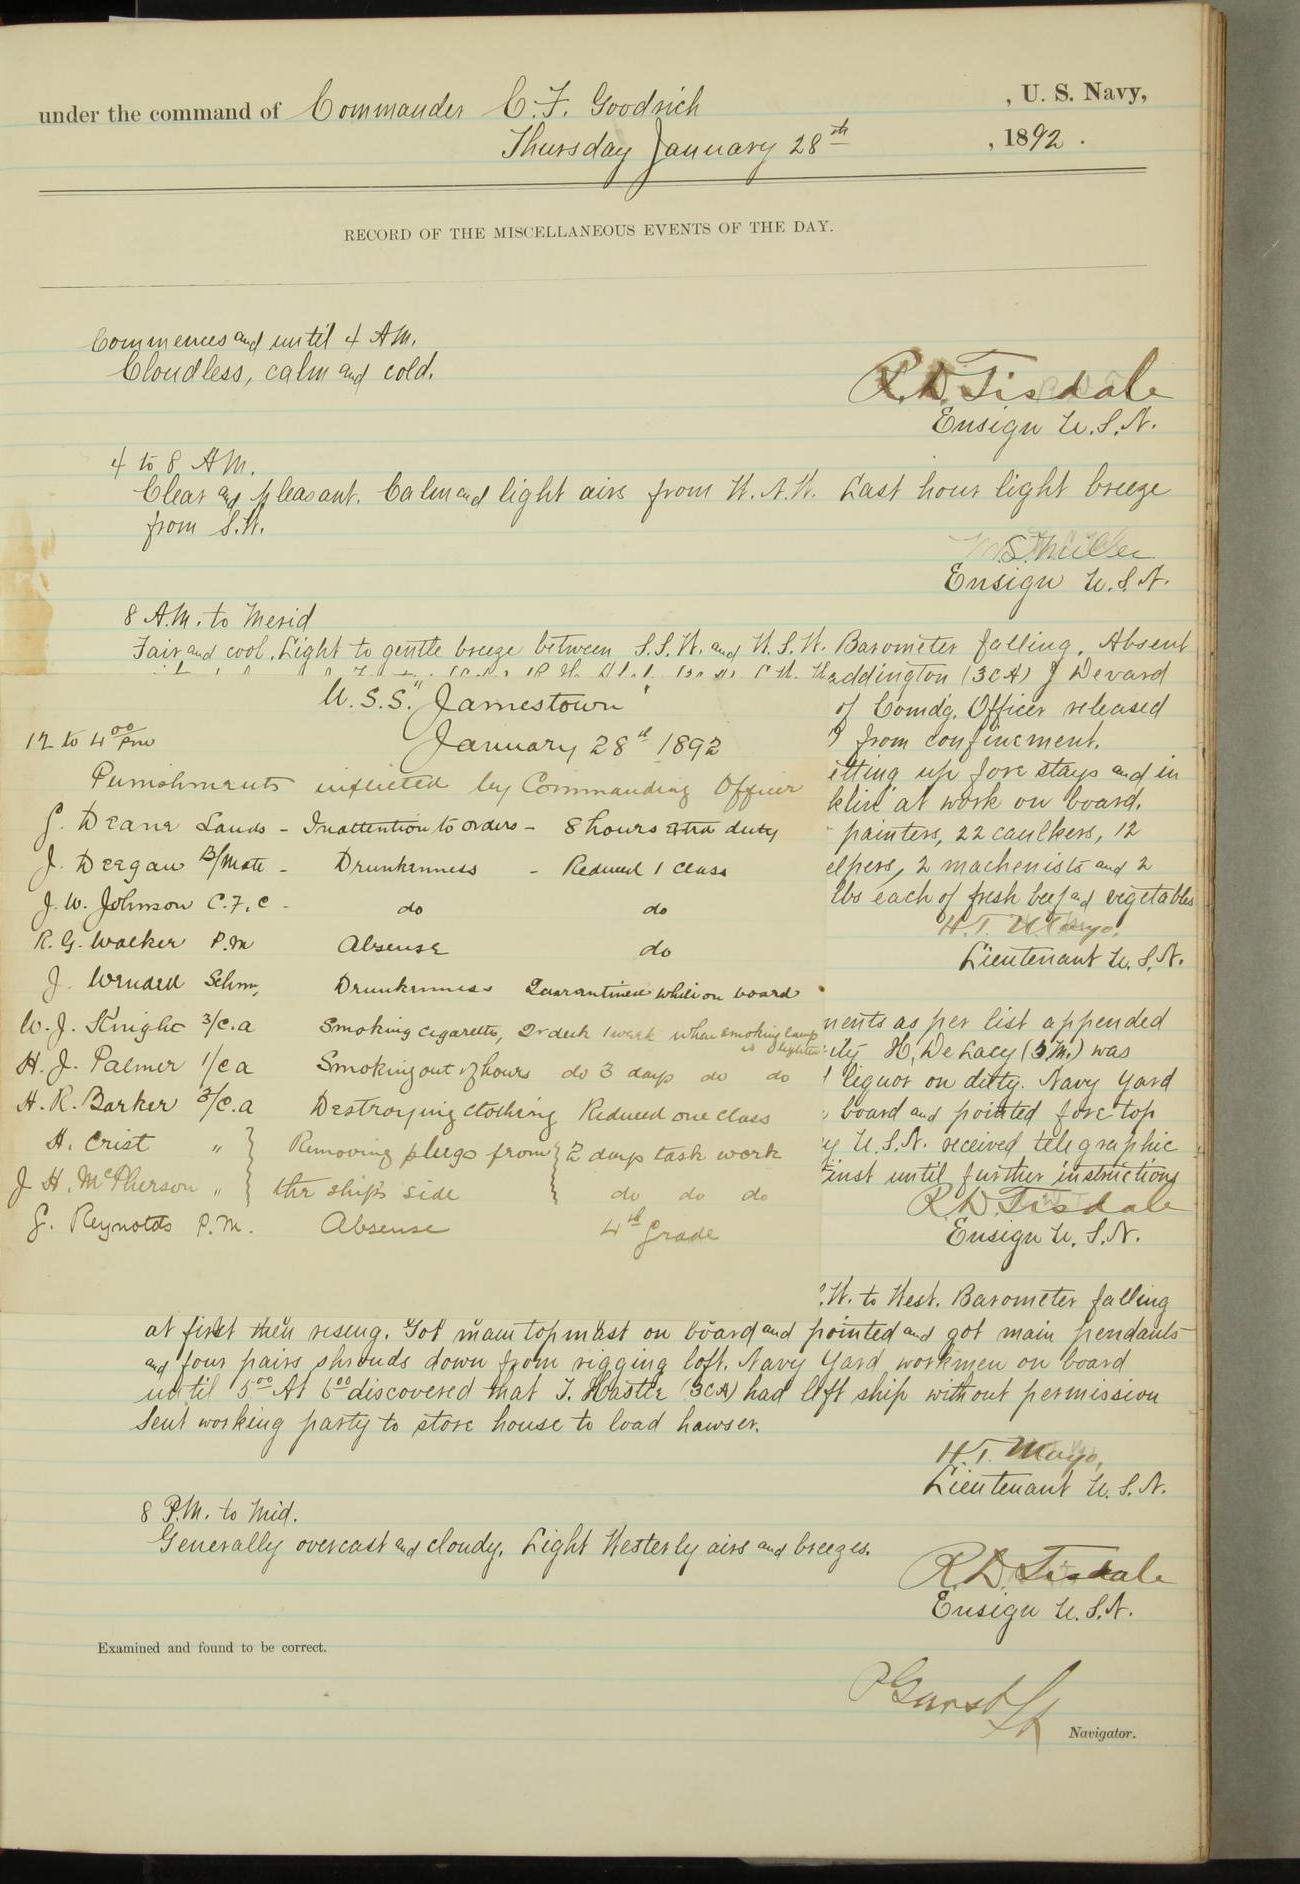 under the command of Commander C. F. Goodrich , U. S. Navy,
Thursday January 28th , 1892 .
RECORD OF THE MISCELLANEOUS EVENTS OF THE DAY.
Commences and until 4 A.M.
Cloudless, calm and cold.
R. D. Tisdale
Ensign U.S.N.
4 to 8 A.M.
Clear and pleasant. Calm and light airs from W.N.W. Last hour light breeze
from S.W.
Ensign U.S.N.
8 A.M. to Merid
Fair and cool. Light to gentle breeze between S.S.W. and W.S.W. Barometer falling. Absent
Waddington (3CA) J Devard
of Comdg. Officer released
from confinement.
etting up fore stays and in
klin" at work on board.
painters, 22 caulkers, 12
elpers, 2 machenists and 2
lbs each of fresh beef and vegetables
H. T. Mayo,
Lieutenant U.S.N.
U.S.S. "Jamestown"
12 to 4 00 Pm January 28th 1892
Punishments inflicted by Commanding Officer
G. Deane Lands - Inattention to orders - 8 hours extra duty
J. Deegan B/Mate - Drunkenness - Reduced 1 class
J. W. Johnson C.F.C - do do
R. G. Walker P.M Absense do
J. Wended Schm, Drunkenness Quarantined while on board
W. J. Knight 3/c.a Smoking cigarette, 2r deck 1 week when smoking lamp
is lighted
H. J. Palmer 1/c a Smoking out of hours do 3 days do do
H. R. Barker 3/c.a Destroying clothing Reduced one class
H. Crist " } Removing plugs from } 2 days task work
J H. McPherson " } the ships side } do do do
G. Reynolds P.M. Absense 4th grade
ments as per list appended
ity H. De Lacy (S.M.) was
liquor on duty. Navy Yard
board and pointed fore top
ey U.S.N. received telegraphic
inst until further instructions
R. D. Tisdale
Ensign U.S.N.
.W. to West. Barometer falling
at first then rising. Got main topmast on board and pointed and got main pendants
and four pairs shrouds down from rigging loft. Navy Yard workmen on board
until 5 00 At 6 00 discovered that T. Hastle (3CA) had left ship without permission
Sent working party to store house to load hawser.
H. T. Mayo,
Lieutenant U.S.N.
8 P.M. to Mid.
Generally overcast and cloudy. Light Westerly airs and breezes.
R. D. Tisdale
Ensign U.S.N.
Examined and found to be correct.
Navigator.